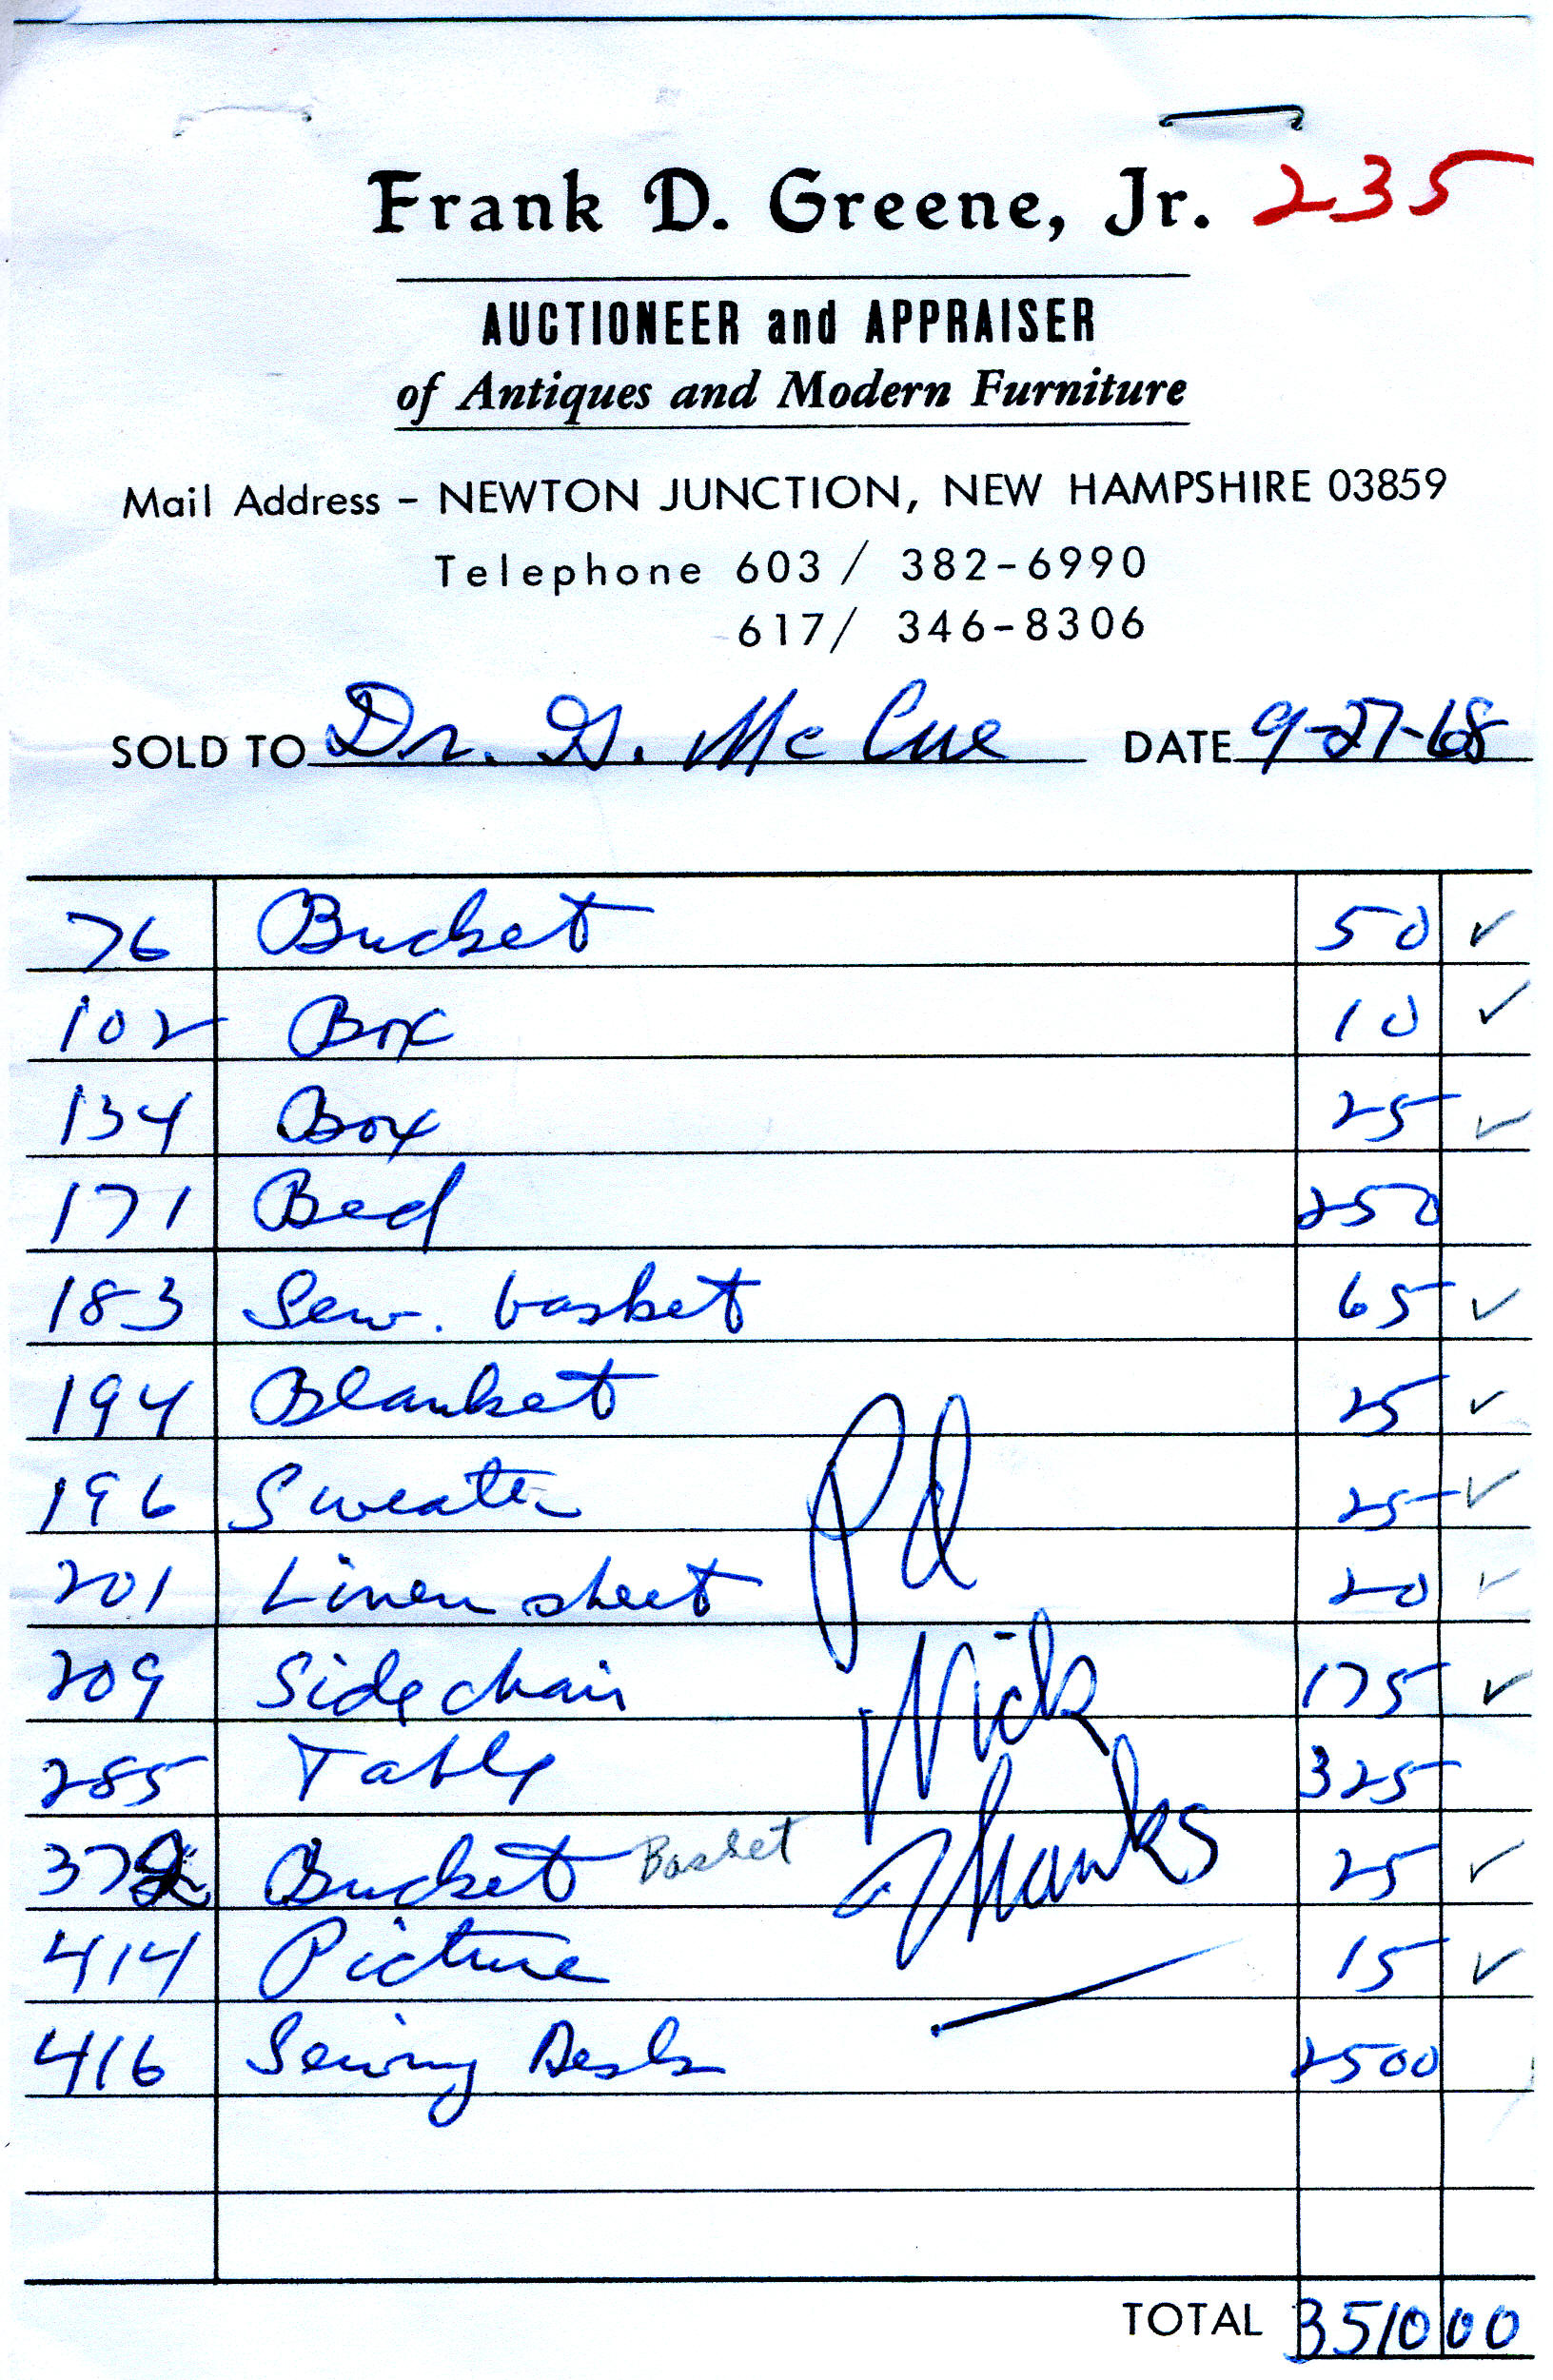 Frank D. Greene, Jr. 235
AUCTIONEER and APPRAISER
of Antiques and Modern Furniture
Mail Address - NEWTON JUNCTION, NEW HAMPSHIRE 03859
Telephone 603 / 382-6990
617/ 346-8306
SOLD TO Dr. G. McCue DATE 9-27-68
76 Bucket 50 ✓
102 Box 10 ✓
134 Box 25 ✓
171 Bed 250
183 Sew. basket 65 ✓
194 Blanket 25 ✓
196 Sweater 25 ✓
201 Linen sheet 20 ✓
209 Side chair 175 ✓
285 Table 325
372 Bucket Basket 25 ✓
414 Picture 15 ✓
416 Sewing Desk 2500
Pd
Nick
Thanks
TOTAL 3510 00